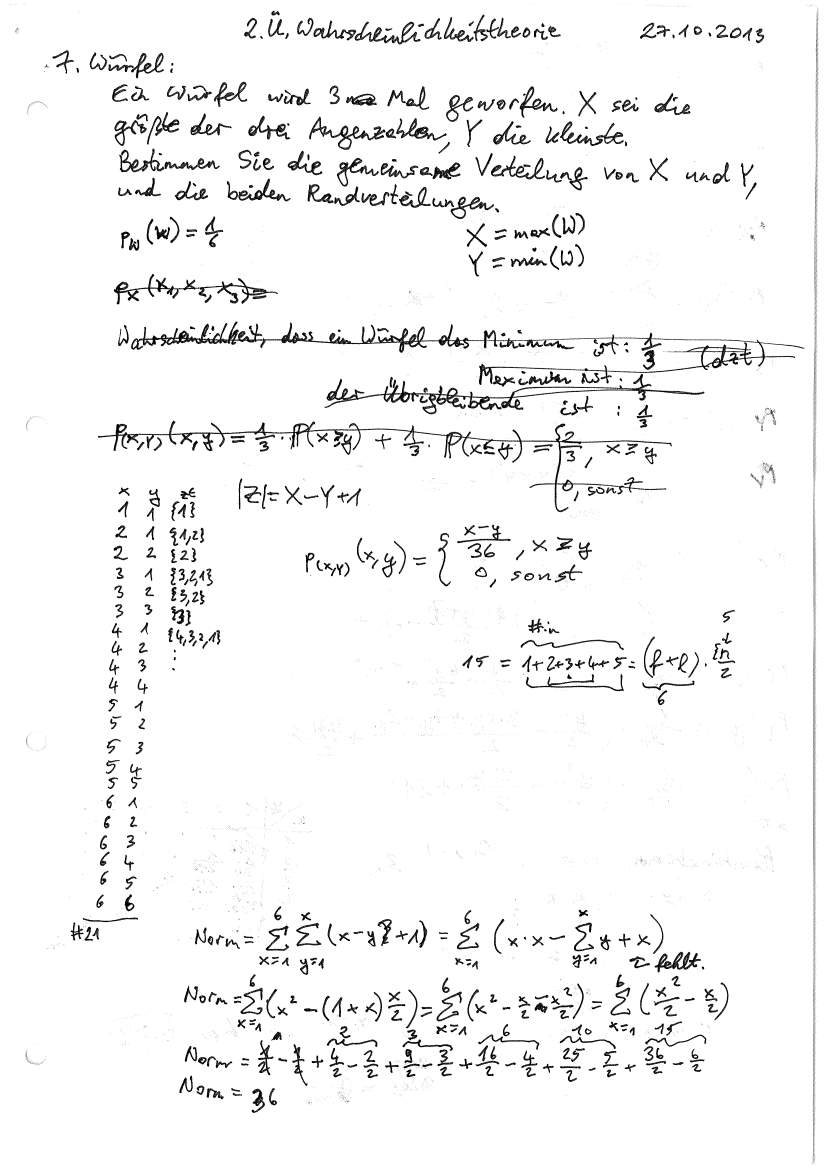 2. Ü, Wahrscheinlichkeitstheorie 27.10.2013
7. Würfel:
Ein Würfel wird 3 Mal geworfen. X sei die
größte der drei Augenzahlen, Y die kleinste.
Bestimmen Sie die gemeinsame Verteilung von X und Y,
und die beiden Randverteilungen.
p_W (w) = 1/6 X = max(W)
Y = min(W)
p_X (x_1, x_2, x_3) =
Wahrscheinlichkeit, dass ein Würfel das Minimum ist: 1/3 (dzt)
Maximum ist: 1/3
der Übrigbleibende ist: 1/3
P_(X,Y) (x,y) = 1/3 · P(x≥y) + 1/3 · P(x≤y) = { 2/3, x≥y
0, sonst
x y z∈ |Z| = X-Y+1
1 1 {1}
2 1 {1,2}
2 2 {2}
3 1 {3,2,1}
3 2 {3,2}
3 3 {3}
4 1 {4,3,2,1}
4 2 :
4 3 :
4 4
5 1
5 2
5 3
5 4
5 5
6 1
6 2
6 3
6 4
6 5
6 6
#21
p_(X,Y) (x,y) = { (x-y)/36, x≥y
0, sonst
#in 5
15 = 1+2+3+4+5 = (f+l) · n/2
6
Norm = Σ_{x=1}^{6} Σ_{y=1}^{x} (x-y+1) = Σ_{x=1}^{6} (x·x - Σ_{y=1}^{x} y + x)
fehlt.
Norm = Σ_{x=1}^{6} (x² - (1+x) x/2) = Σ_{x=1}^{6} (x² - x/2 - x²/2) = Σ_{x=1}^{6} (x²/2 - x/2)
2 3 6 10 15
Norm = 1/2 - 1/2 + 4/2 - 2/2 + 9/2 - 3/2 + 16/2 - 4/2 + 25/2 - 5/2 + 36/2 - 6/2
Norm = 36